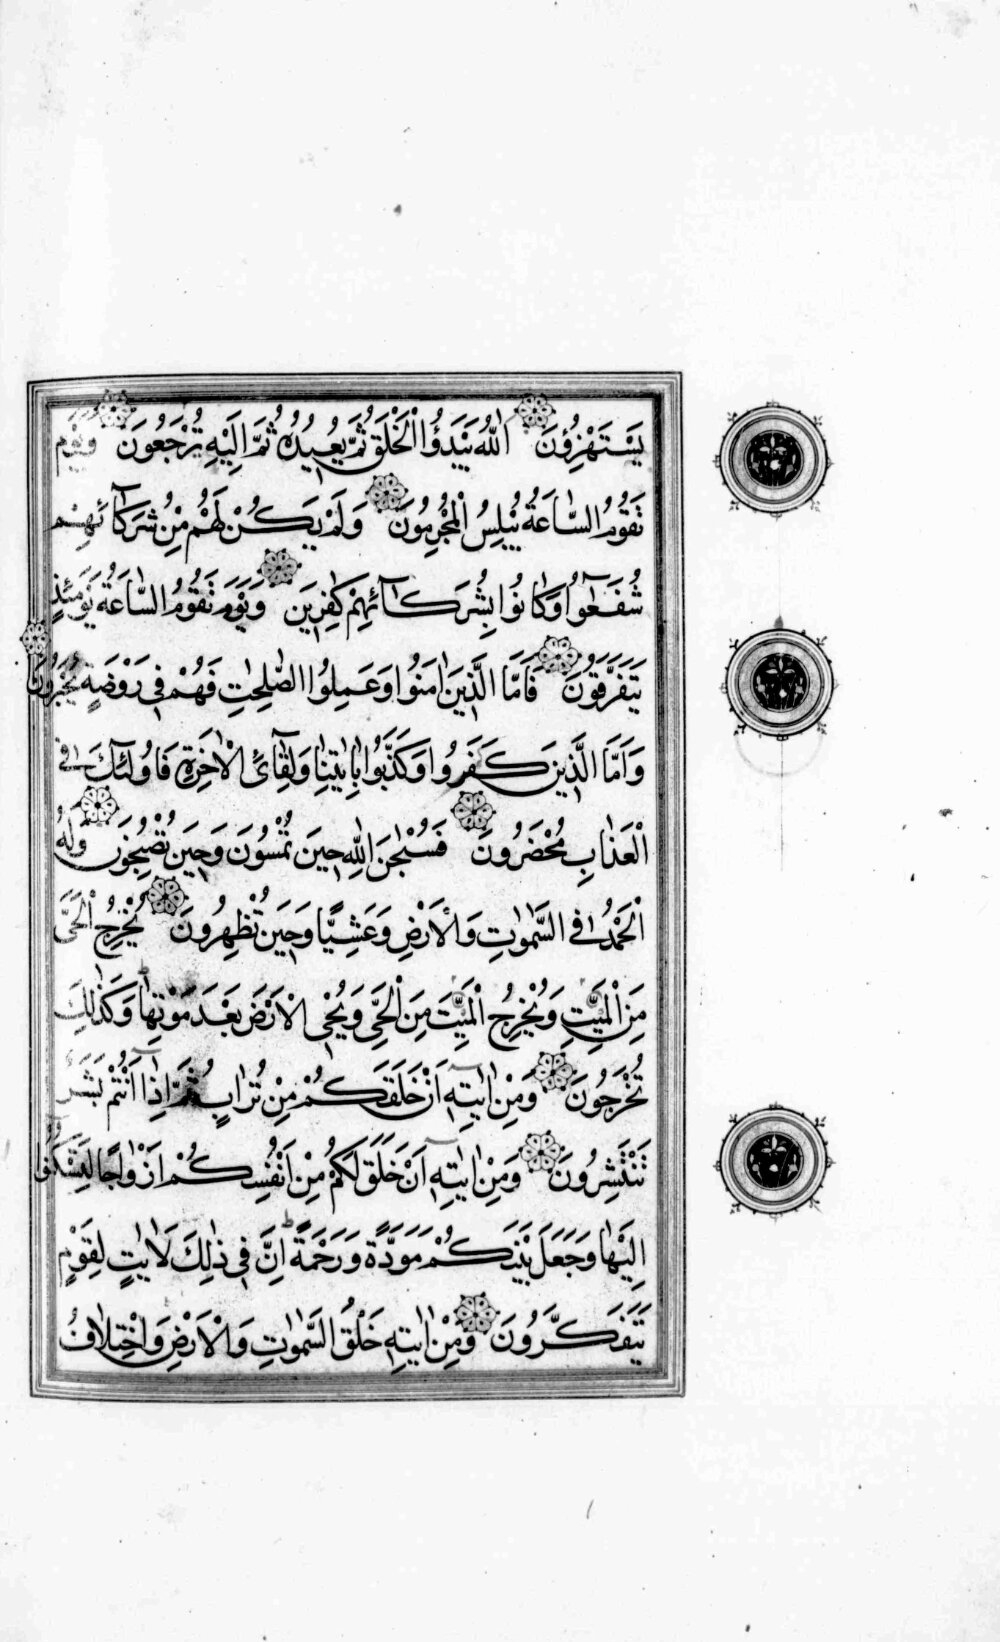 يَسْتَهْزِؤُنَ اَللّٰهُ يَبْدَؤُا الْخَلْقَ ثُمَّ يُعِيدُهُ ثُمَّ اِلَيْهِ تُرْجَعُونَ وَيَوْمَ
تَقُومُ السَّاعَةُ يُبْلِسُ الْمُجْرِمُونَ وَلَمْ يَكُنْ لَهُمْ مِنْ شُرَكَآئِهِمْ
شُفَعٰٓؤُا وَكَانُوا بِشُرَكَآئِهِمْ كٰفِرِينَ وَيَوْمَ تَقُومُ السَّاعَةُ يَوْمَئِذٍ
يَتَفَرَّقُونَ فَاَمَّا الَّذِينَ اٰمَنُوا وَعَمِلُوا الصّٰلِحٰتِ فَهُمْ فِي رَوْضَةٍ يُحْبَرُونَ
وَاَمَّا الَّذِينَ كَفَرُوا وَكَذَّبُوا بِاٰيٰتِنَا وَلِقَآئِ الْاٰخِرَةِ فَاُولٰٓئِكَ فِي
الْعَذَابِ مُحْضَرُونَ فَسُبْحٰنَ اللّٰهِ حِينَ تُمْسُونَ وَحِينَ تُصْبِحُونَ وَلَهُ
الْحَمْدُ فِي السَّمٰوٰتِ وَالْاَرْضِ وَعَشِيًّا وَحِينَ تُظْهِرُونَ يُخْرِجُ الْحَيَّ
مِنَ الْمَيِّتِ وَيُخْرِجُ الْمَيِّتَ مِنَ الْحَيِّ وَيُحْيِي الْاَرْضَ بَعْدَ مَوْتِهَا وَكَذٰلِكَ
تُخْرَجُونَ وَمِنْ اٰيٰتِهٖٓ اَنْ خَلَقَكُمْ مِنْ تُرَابٍ ثُمَّ اِذَٓا اَنْتُمْ بَشَرٌ
تَنْتَشِرُونَ وَمِنْ اٰيٰتِهٖٓ اَنْ خَلَقَ لَكُمْ مِنْ اَنْفُسِكُمْ اَزْوَاجًا لِتَسْكُنُٓوا
اِلَيْهَا وَجَعَلَ بَيْنَكُمْ مَوَدَّةً وَرَحْمَةً ط اِنَّ فِي ذٰلِكَ لَاٰيٰتٍ لِقَوْمٍ
يَتَفَكَّرُونَ وَمِنْ اٰيٰتِهٖ خَلْقُ السَّمٰوٰتِ وَالْاَرْضِ وَاخْتِلَافُ